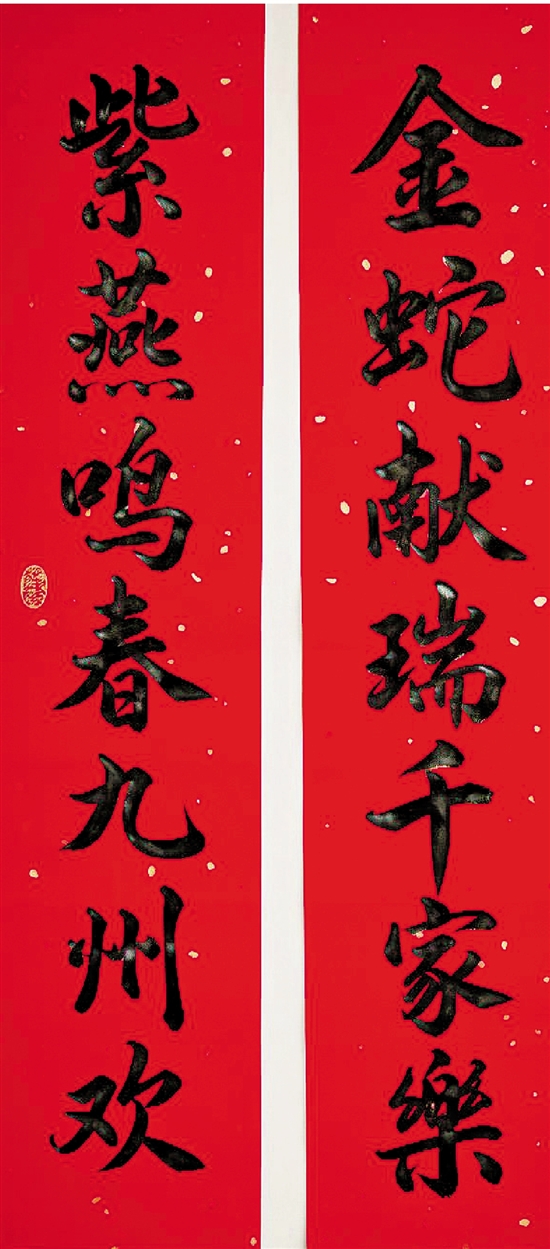 金蛇献瑞千家樂
紫燕鸣春九州欢